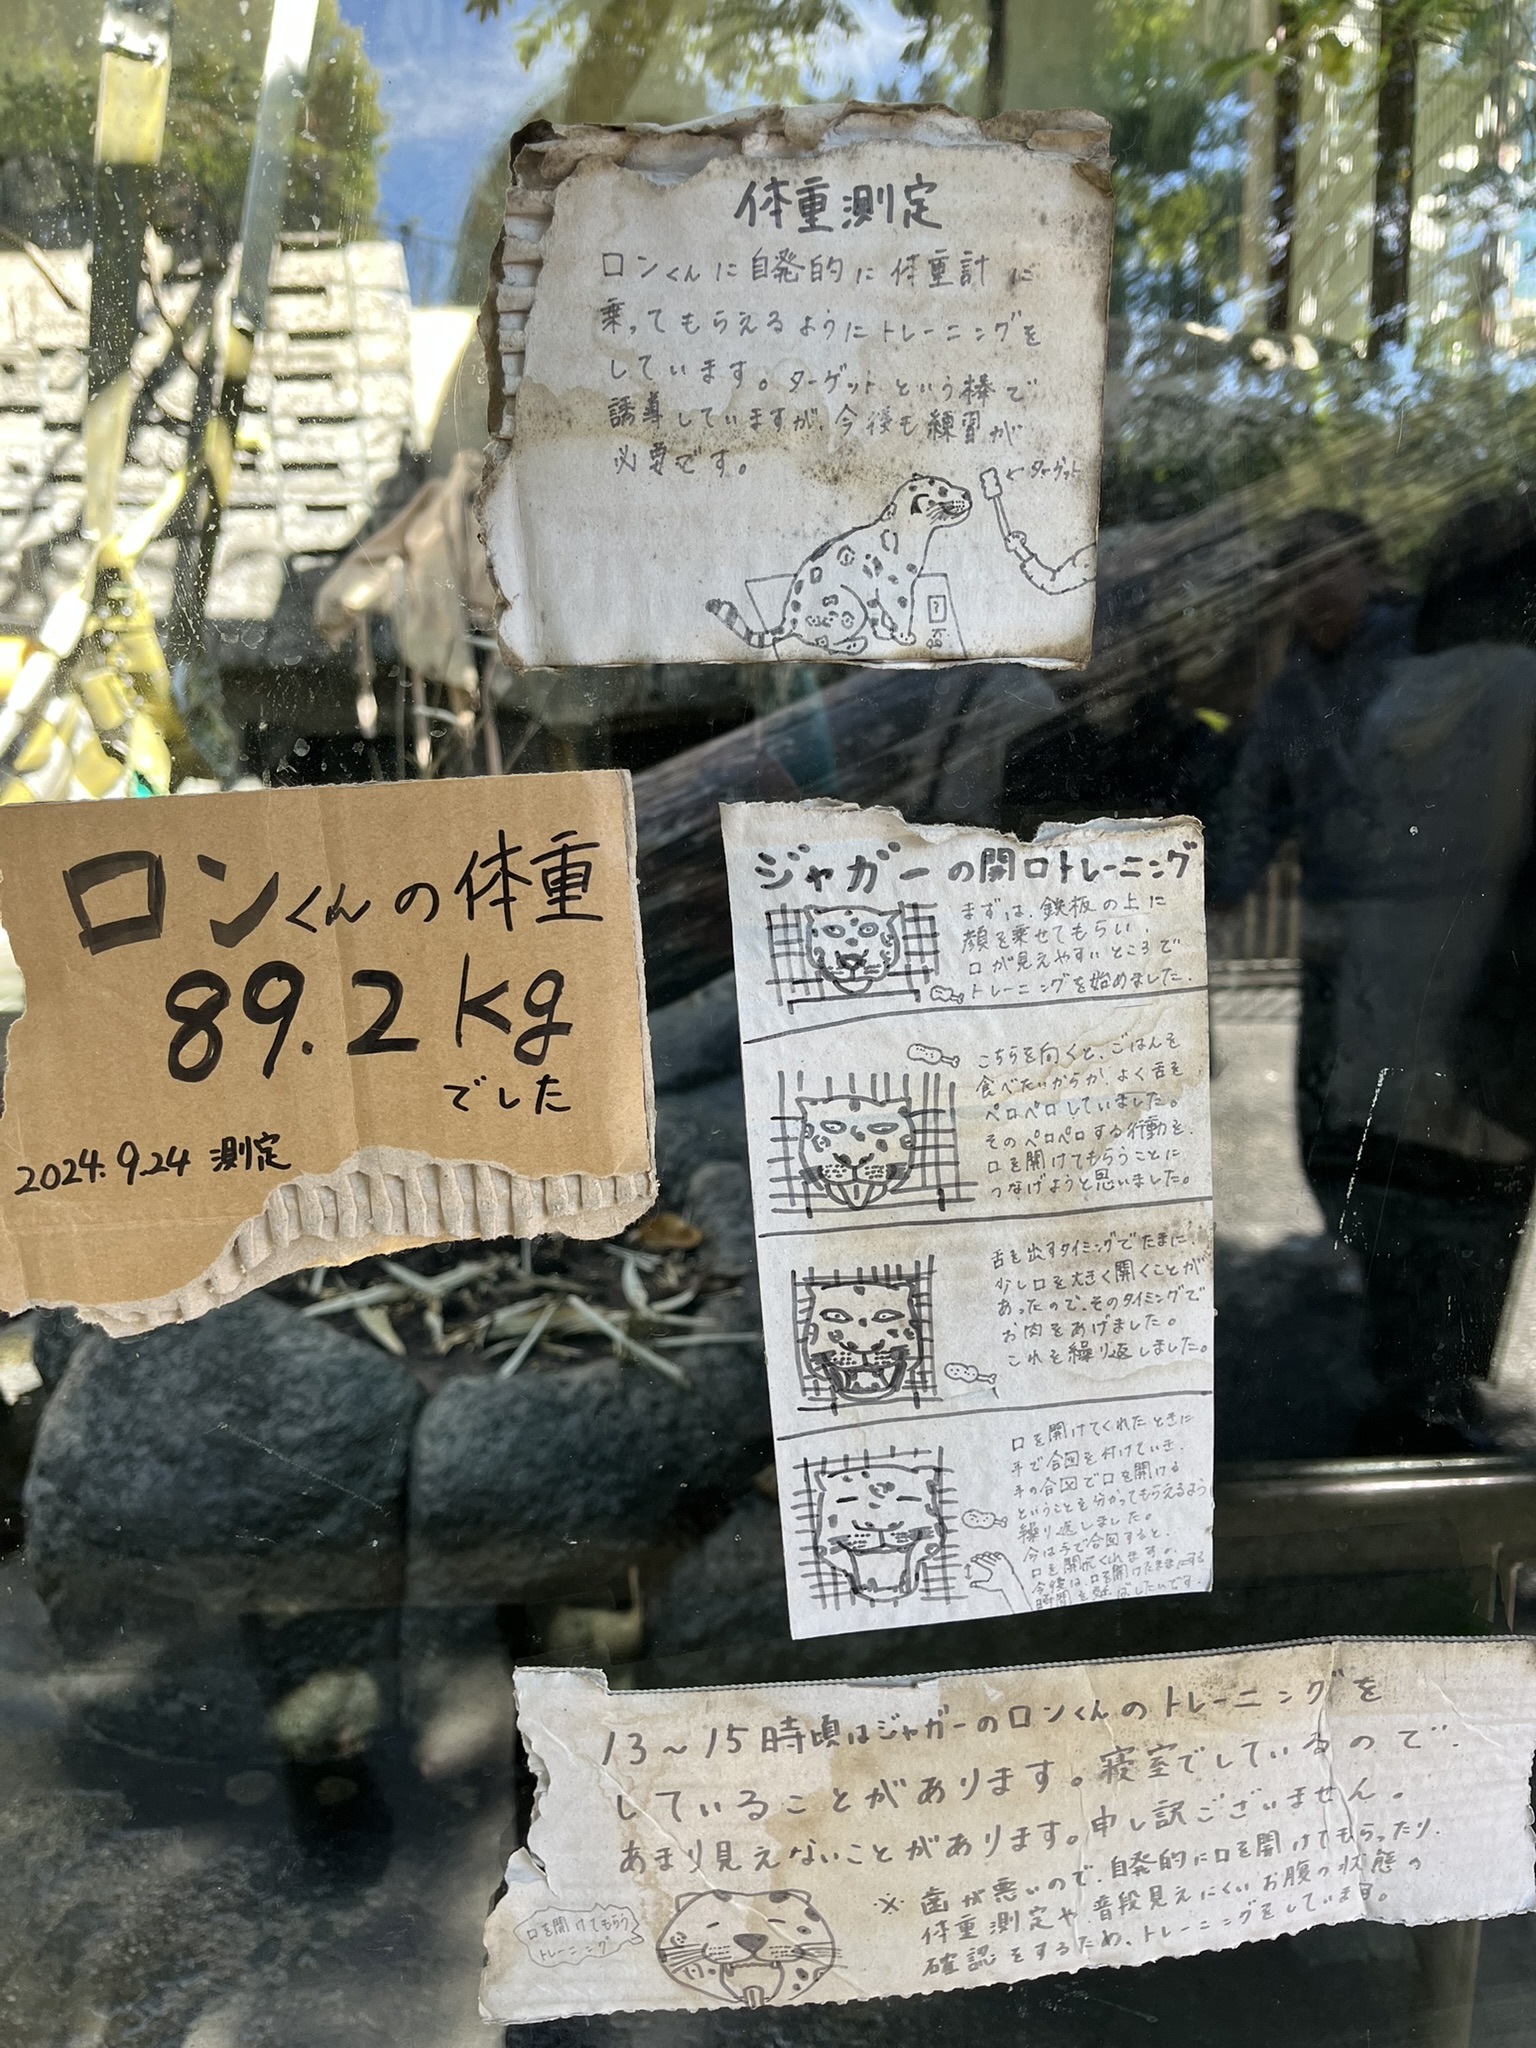 体重測定
ロンくんに自発的に体重計に
乗ってもらえるようにトレーニングを
しています。ターゲットという棒で
誘導していますが、今後も練習が
必要です。
←ターゲット
ロンくんの体重
89.2kg
でした
2024.9.24 測定
ジャガーの開口トレーニング
まずは、鉄板の上に
顔を乗せてもらい、
口が見えやすいところで
トレーニングを始めました。
こちらを向くと、ごはんを
食べたいからか、よく舌を
ペロペロしていました。
そのペロペロする行動を、
口を開けてもらうことに
つなげようと思いました。
舌を出すタイミングでたまに、
少し口を大きく開くことが
あったので、そのタイミングで
お肉をあげました。
これを繰り返しました。
口を開けてくれたときに
手で合図を付けていき、
手の合図で口を開ける
ということを分かってもらえるよう
繰り返しました。
今は手で合図すると、
口を開けてくれますが、
今後は、口を開けたままにする
時間を延ばしたいです。
13～15時頃はジャガーのロンくんのトレーニングを
していることがあります。寝室でしているので、
あまり見えないことがあります。申し訳ございません。
※ 歯が悪いので、自発的に口を開けてもらったり、
体重測定や普段見えにくいお腹の状態の
確認をするため、トレーニングをしています。
口を開けてもらう
トレーニング